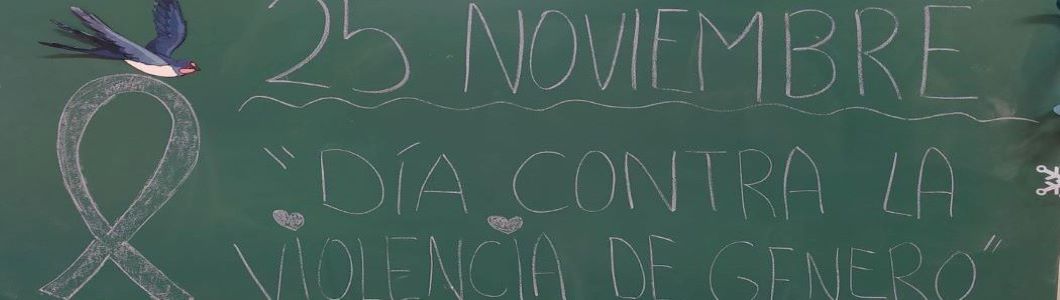 25 NOVIEMBRE
"DÍA CONTRA LA
VIOLENCIA DE GENERO"